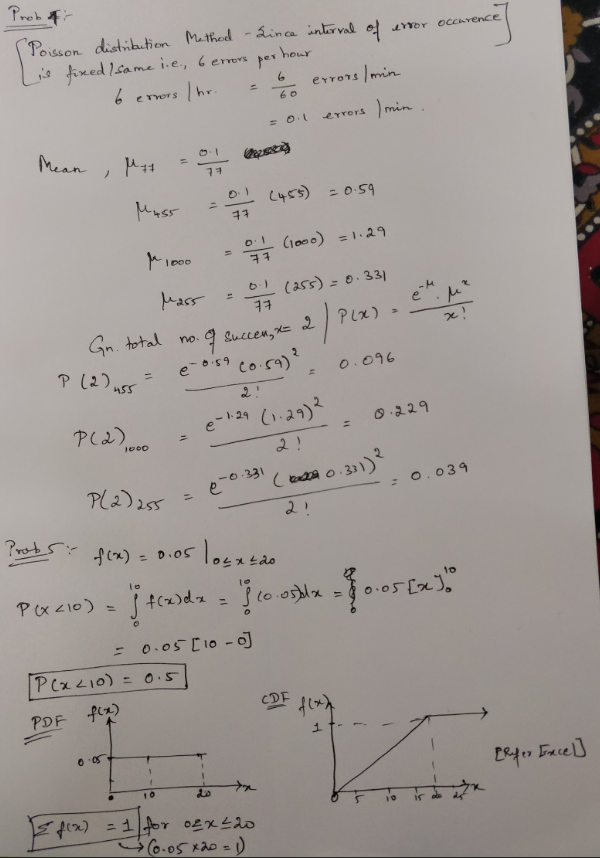 Prob 4:-
[Poisson distribution Method - Since interval of error occurence
is fixed/same i.e, 6 errors per hour]
6 errors / hr. = 6/60 errors/min
= 0.1 errors /min.
Mean, μ77 = 0.1/77
μ455 = 0.1/77 (455) = 0.59
μ1000 = 0.1/77 (1000) = 1.29
μ255 = 0.1/77 (255) = 0.331
Gn. total no. of succes, x= 2 | P(x) = e^-μ . μ^x / x!
P(2)455 = e^-0.59 (0.59)^2 / 2! = 0.096
P(2)1000 = e^-1.29 (1.29)^2 / 2! = 0.229
P(2)255 = e^-0.331 (0.331)^2 / 2! = 0.039
Prob 5:- f(x) = 0.05 |0≤x≤20
P(x<10) = ∫0^10 f(x)dx = ∫0^10 (0.05)dx = 0.05[x]0^10
= 0.05 [10 - 0]
P(x<10) = 0.5
PDF f(x)
0.05
0 10 20 x
CDF f(x)
1
0 5 10 15 20 25 x
[Refer Excel]
Σf(x) = 1 for 0≤x≤20
→(0.05×20=1)